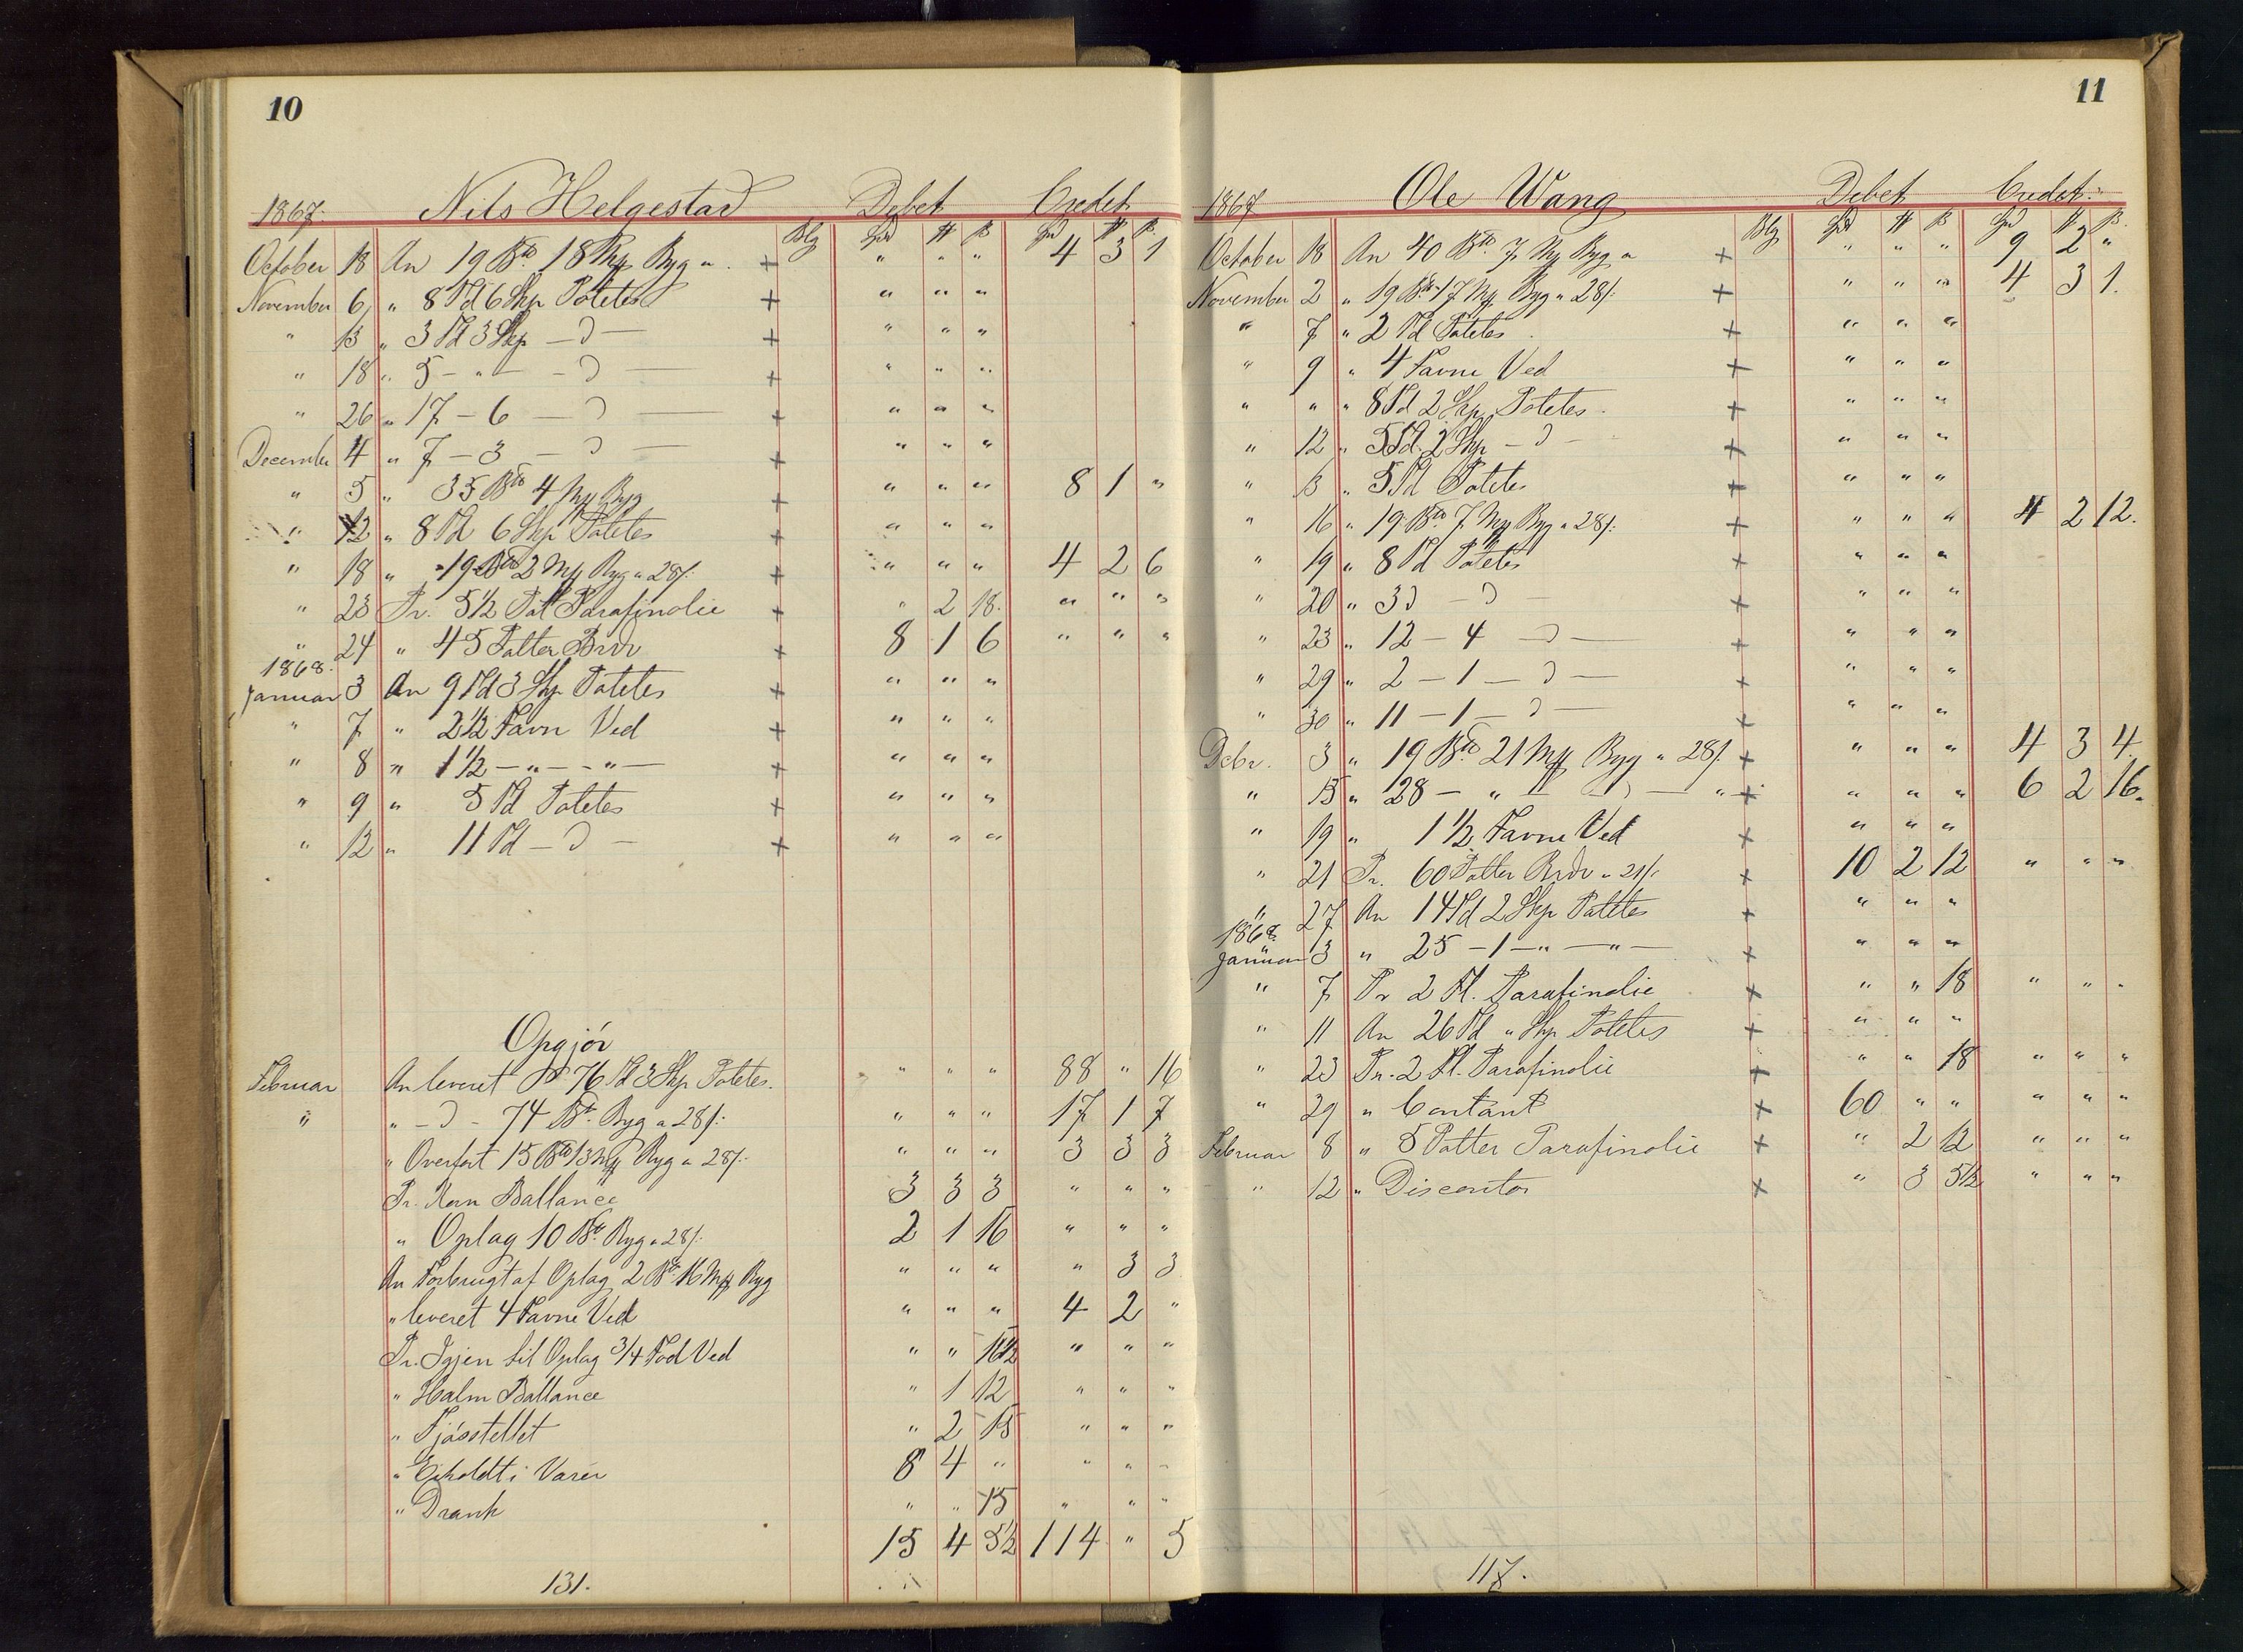 10
1867. Nils Helgestad Debet Credet
Blg Spd # ß Spd # ß
October 18 An 19 Btt 18 Mk Byg a + " " " 4 3 1
November 6 " 8 Td 6 Skp Potetes + " " "
" 13 " 3 Td 3 Skp — D — + " " "
" 18 " 5 - " - - D — + " " "
" 26 " 17 - 6 — D — + " " "
December 4 " 7 - 3 — D — + " " "
" 5 " 35 Btt 4 Mk Byg + " " " 8 1 "
" 12 " 8 Td 6 Skp Potetes + " " "
" 18 " 19 Btt 2 Mk Byg a 28/: + " " " 4 2 6
" 23 Pr. 5 1/2 Pot Parafinolie + " 2 18. " " "
" 24 " 45 Potter Brdv + 8 1 6 " " "
1868.
Januar 3 An 9 Td 3 Skp Potetes + " " "
" 7 " 2 1/2 Favn Ved + " " "
" 8 " 1 1/2 — " — " — + " " "
" 9 " 5 Td Potetes + " " "
" 12 " 11 Td — D — + " " "
Opgjör
Februar An leveret 76 Td 3 Skp Potetes. " " " 88 " 16
" " — D — 74 Bt. Byg a 28/: " " " 17 1 7
" Overført 15 Btt 13 Mk Byg a 28/: " " " 3 3 3
Pr. Korn Ballance 3 3 3 " " "
" Oplag 10 Bt. Byg a 28/: 2 1 16 " " "
An Forbrugt af Oplag 2 Bt. 16 Mk Byg " " " " 3 3
" leveret 4 Favne Ved " " " 4 2 "
Pr. Igjen til Oplag 3/4 Fod Ved " " 16 1/2 " " "
" Halm Ballance " 1 12 " " "
" Fjösstellet " 2 15 " " "
" Erholdt i Varer 8 4 " " " "
" Drank " " 15 " " "
15 4 5 1/2 114 " 5
131.
11
1867 Ole Wang Debet Credet:
Blg Spd # ß Spd # ß
October 18 An 40 Btt 7 Mk Byg a + " " " 9 2 "
November 2 " 19 Bt. 17 Mk Byg a 28/: + " " " 4 3 1.
" 7 " 2 Td Potetes + " " "
" 9 " 4 Favne Ved + " " "
" " " 8 Td 2 Skp Potetes. + " " "
" 12 " 5 Td. 2 Skp — D — + " " "
" 13 " 5 Td Potetes + " " "
" 16 " 19 Btt 7 Mk Byg a 28/: + " " " 4 2 12.
" 19 " 8 Td Potetes + " " "
" 20 " 3 D — D — + " " "
" 23 " 12 — 4 — D — + " " "
" 29 " 2 — 1 — D — + " " "
" 30 " 11 — 1 — D — + " " "
Debr. 3 " 19 Btt 21 Mk Byg a 28/. + " " " 4 3 4
" 15 " 28 — " — D — " + " " " 6 2 16.
" 19 " 1 1/2 Favne Ved + " " "
" 21 Pr. 60 Potter Brdv a 21/. + 10 2 12 " " "
" 27 An 14 Td 2 Skp Potetes + " " "
1868
Januar 3 " 25 — 1 — " — " — + " " "
" 7 Pr 2 Fl. Parafinolie + " " 18 " " "
" 11 An 26 Td " Skp Potetes + " " "
" 23 Pr. 2 Fl. Parafinolie + " " 18 " " "
" 29 " Contant + 60 " " " " "
Februar 8 " 5 Potter Parafinolie + " 2 12 " " "
" 12 " Disconto + " 3 5 1/2 " " "
117.